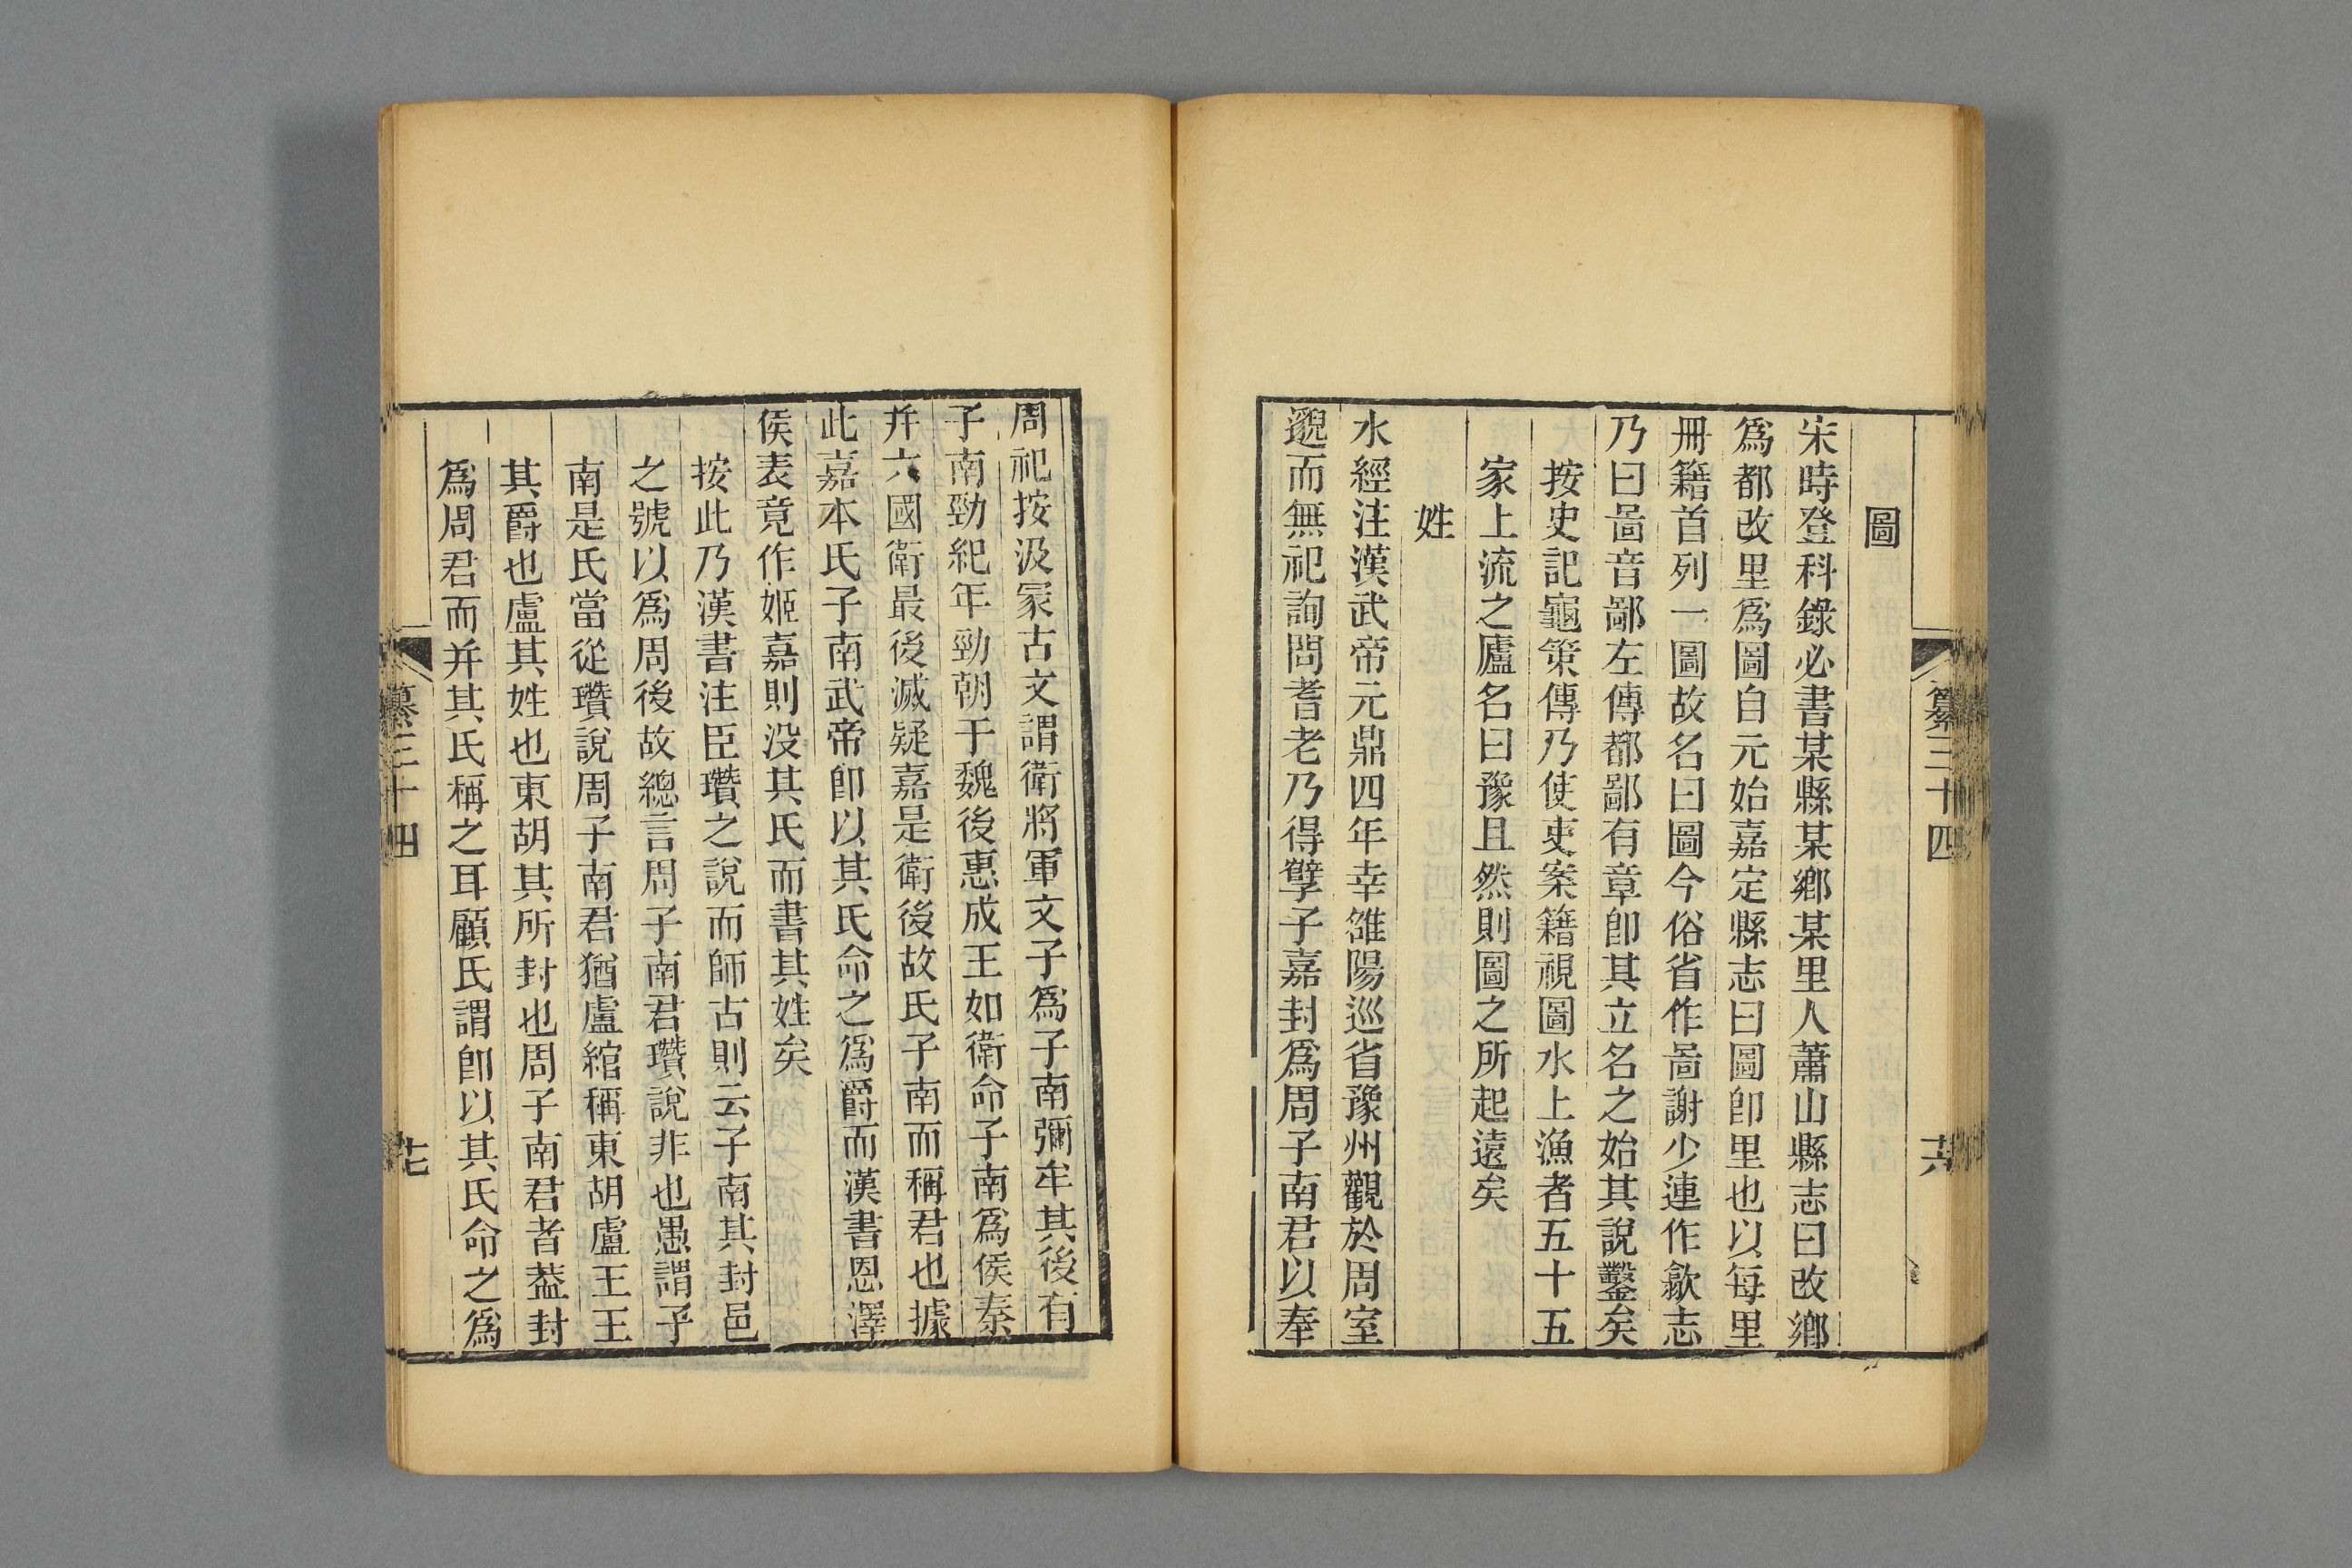 圖
宋時登科錄必書某縣某鄉某里人蕭山縣志曰改鄉
爲都改里爲圖自元始嘉定縣志曰圖卽里也以每里
冊籍首列一圖故名曰圖今俗省作啚謝少連作歙志
乃曰啚音鄙左傳都鄙有章卽其立名之始其說鑿矣
按史記龜策傳乃使吏案籍視圖水上漁者五十五
家上流之廬名曰豫且然則圖之所起遠矣
姓
水經注漢武帝元鼎四年幸雒陽巡省豫州觀於周室
邈而無祀詢問耆老乃得孽子嘉封爲周子南君以奉
纂三十四
周祀按汲冢古文謂衛將軍文子爲子南彌牟其後有
子南勁紀年勁朝于魏後惠成王如衛命子南爲侯秦
并六國衛最後滅疑嘉是衛後故氏子南而稱君也據
此嘉本氏子南武帝卽以其氏命之爲爵而漢書恩澤
侯表竟作姬嘉則没其氏而書其姓矣
按此乃漢書注臣瓚之說而師古則云子南其封邑
之號以爲周後故總言周子南君瓚說非也愚謂子
南是氏當從瓚說周子南君猶盧綰稱東胡盧王王
其爵也盧其姓也東胡其所封也周子南君者葢封
爲周君而并其氏稱之耳顧氏謂卽以其氏命之爲
纂三十四